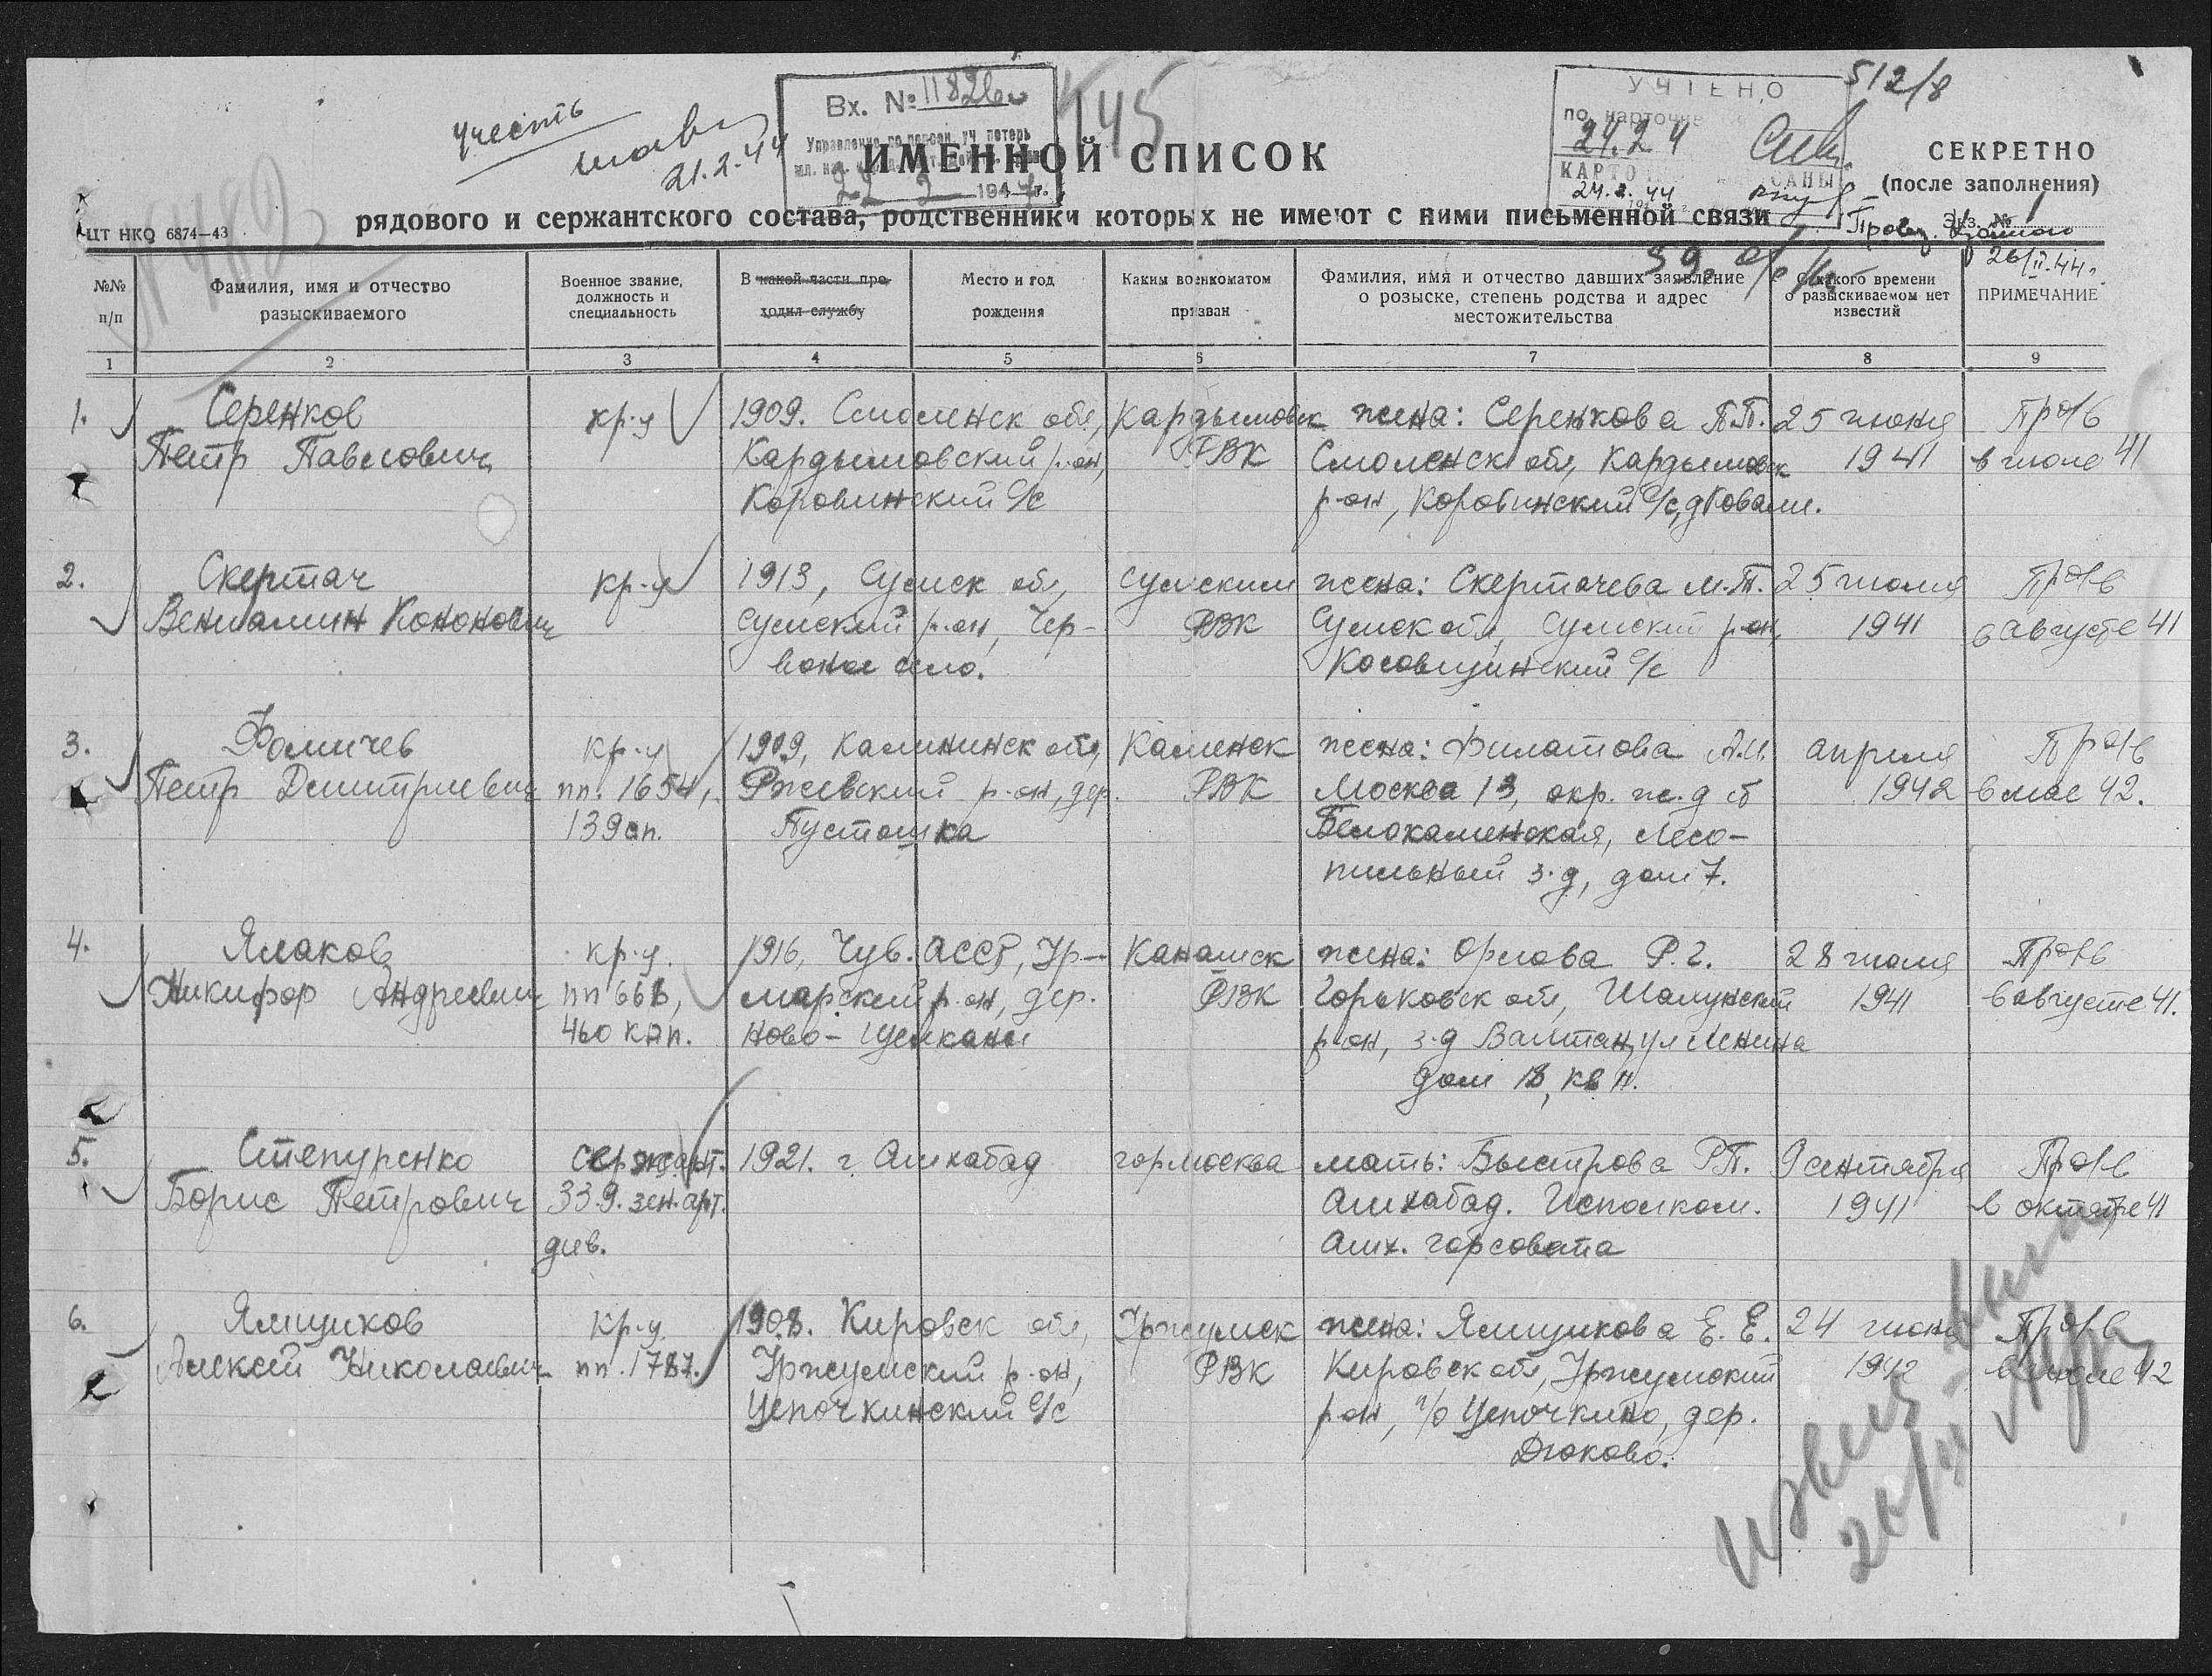 512/8
Учесть
21.2.44
Вх. № 11826
Управление по персон. уч. потерь
22 2 1944 г.
145
УЧТЕНО
по карточке
24.2 4
24.2.44
СЕКРЕТНО
(после заполнения)
Экз. №
ИМЕННОЙ СПИСОК
рядового и сержантского состава, родственники которых не имеют с ними письменной связи
ЦТ НКО 6874—43
26/II.44г.
№№ п/п
Фамилия, имя и отчество разыскиваемого
Военное звание, должность и специальность
В какой части проходил службу
Место и год рождения
Каким военкоматом призван
Фамилия, имя и отчество давших заявление о розыске, степень родства и адрес местожительства
С какого времени о разыскиваемом нет известий
ПРИМЕЧАНИЕ
1 2 3 4 5 6 7 8 9
1. Серенков кр-ц 1909. Смоленск обл, Кардымовск жена: Серенкова П.П. 25 июня Пр/б
Петр Павлович Кардымовский р-он, РВК Смоленск обл, Кардымовск 1941 в июле 41
Коровинский с/с р-он, Коровинский с/с,
2. Скертач кр-ц 1913, Сумск обл, Сумским жена: Скертачева М.Т. 25 июля Пр/б
Вениамин Кононович Сумский р-он, Чер- РВК Сумск обл, Сумский р-он, 1941 в августе 41
воное село. Косовщинский с/с
3. Фомичев кр-ц 1909, Калининск обл, Каменск жена: Филатова А.И. апреля Пр/б
Петр Дмитриевич пп. 1654, Ржевский р-он, дер. РВК Москва 13, окр. ж.д ст 1942 в мае 42.
139 сп. Пустошка Белокаменская, Лесо-
пильный з-д, дом 7.
4. Ялаков кр-ц. 1916, Чув. АССР, Ур- Канашск жена: Орлова Р.Г. 28 июля Пр/б
Никифор Андреевич пп 668, марский р-он, дер. РВК Горьковск обл, Шахунский 1941 в августе 41.
460 кап. Ново-Щелканы р-он, з-д Вахтан, ул Ленина
дом 18, кв 11.
5. Степуренко сержант. 1921. г Ашхабад гор Москва мать: Быстрова Р.П. 9 сентября Пр/б
Борис Петрович 339. зен. арт. Ашхабад. Исполком. 1941 в октябре 41
див. Ашх. горсовета
6. Ямщиков кр-ц 1908. Кировск обл, Уржумск жена: Ямщикова Е. Е. 24 июня Пр/б
Алексей Николаевич пп. 1787. Уржумский р-он, РВК Кировск обл, Уржумский 1942 в июле 42
Цепочкинский с/с р-он, п/о Цепочкино, дер.
Дюково.